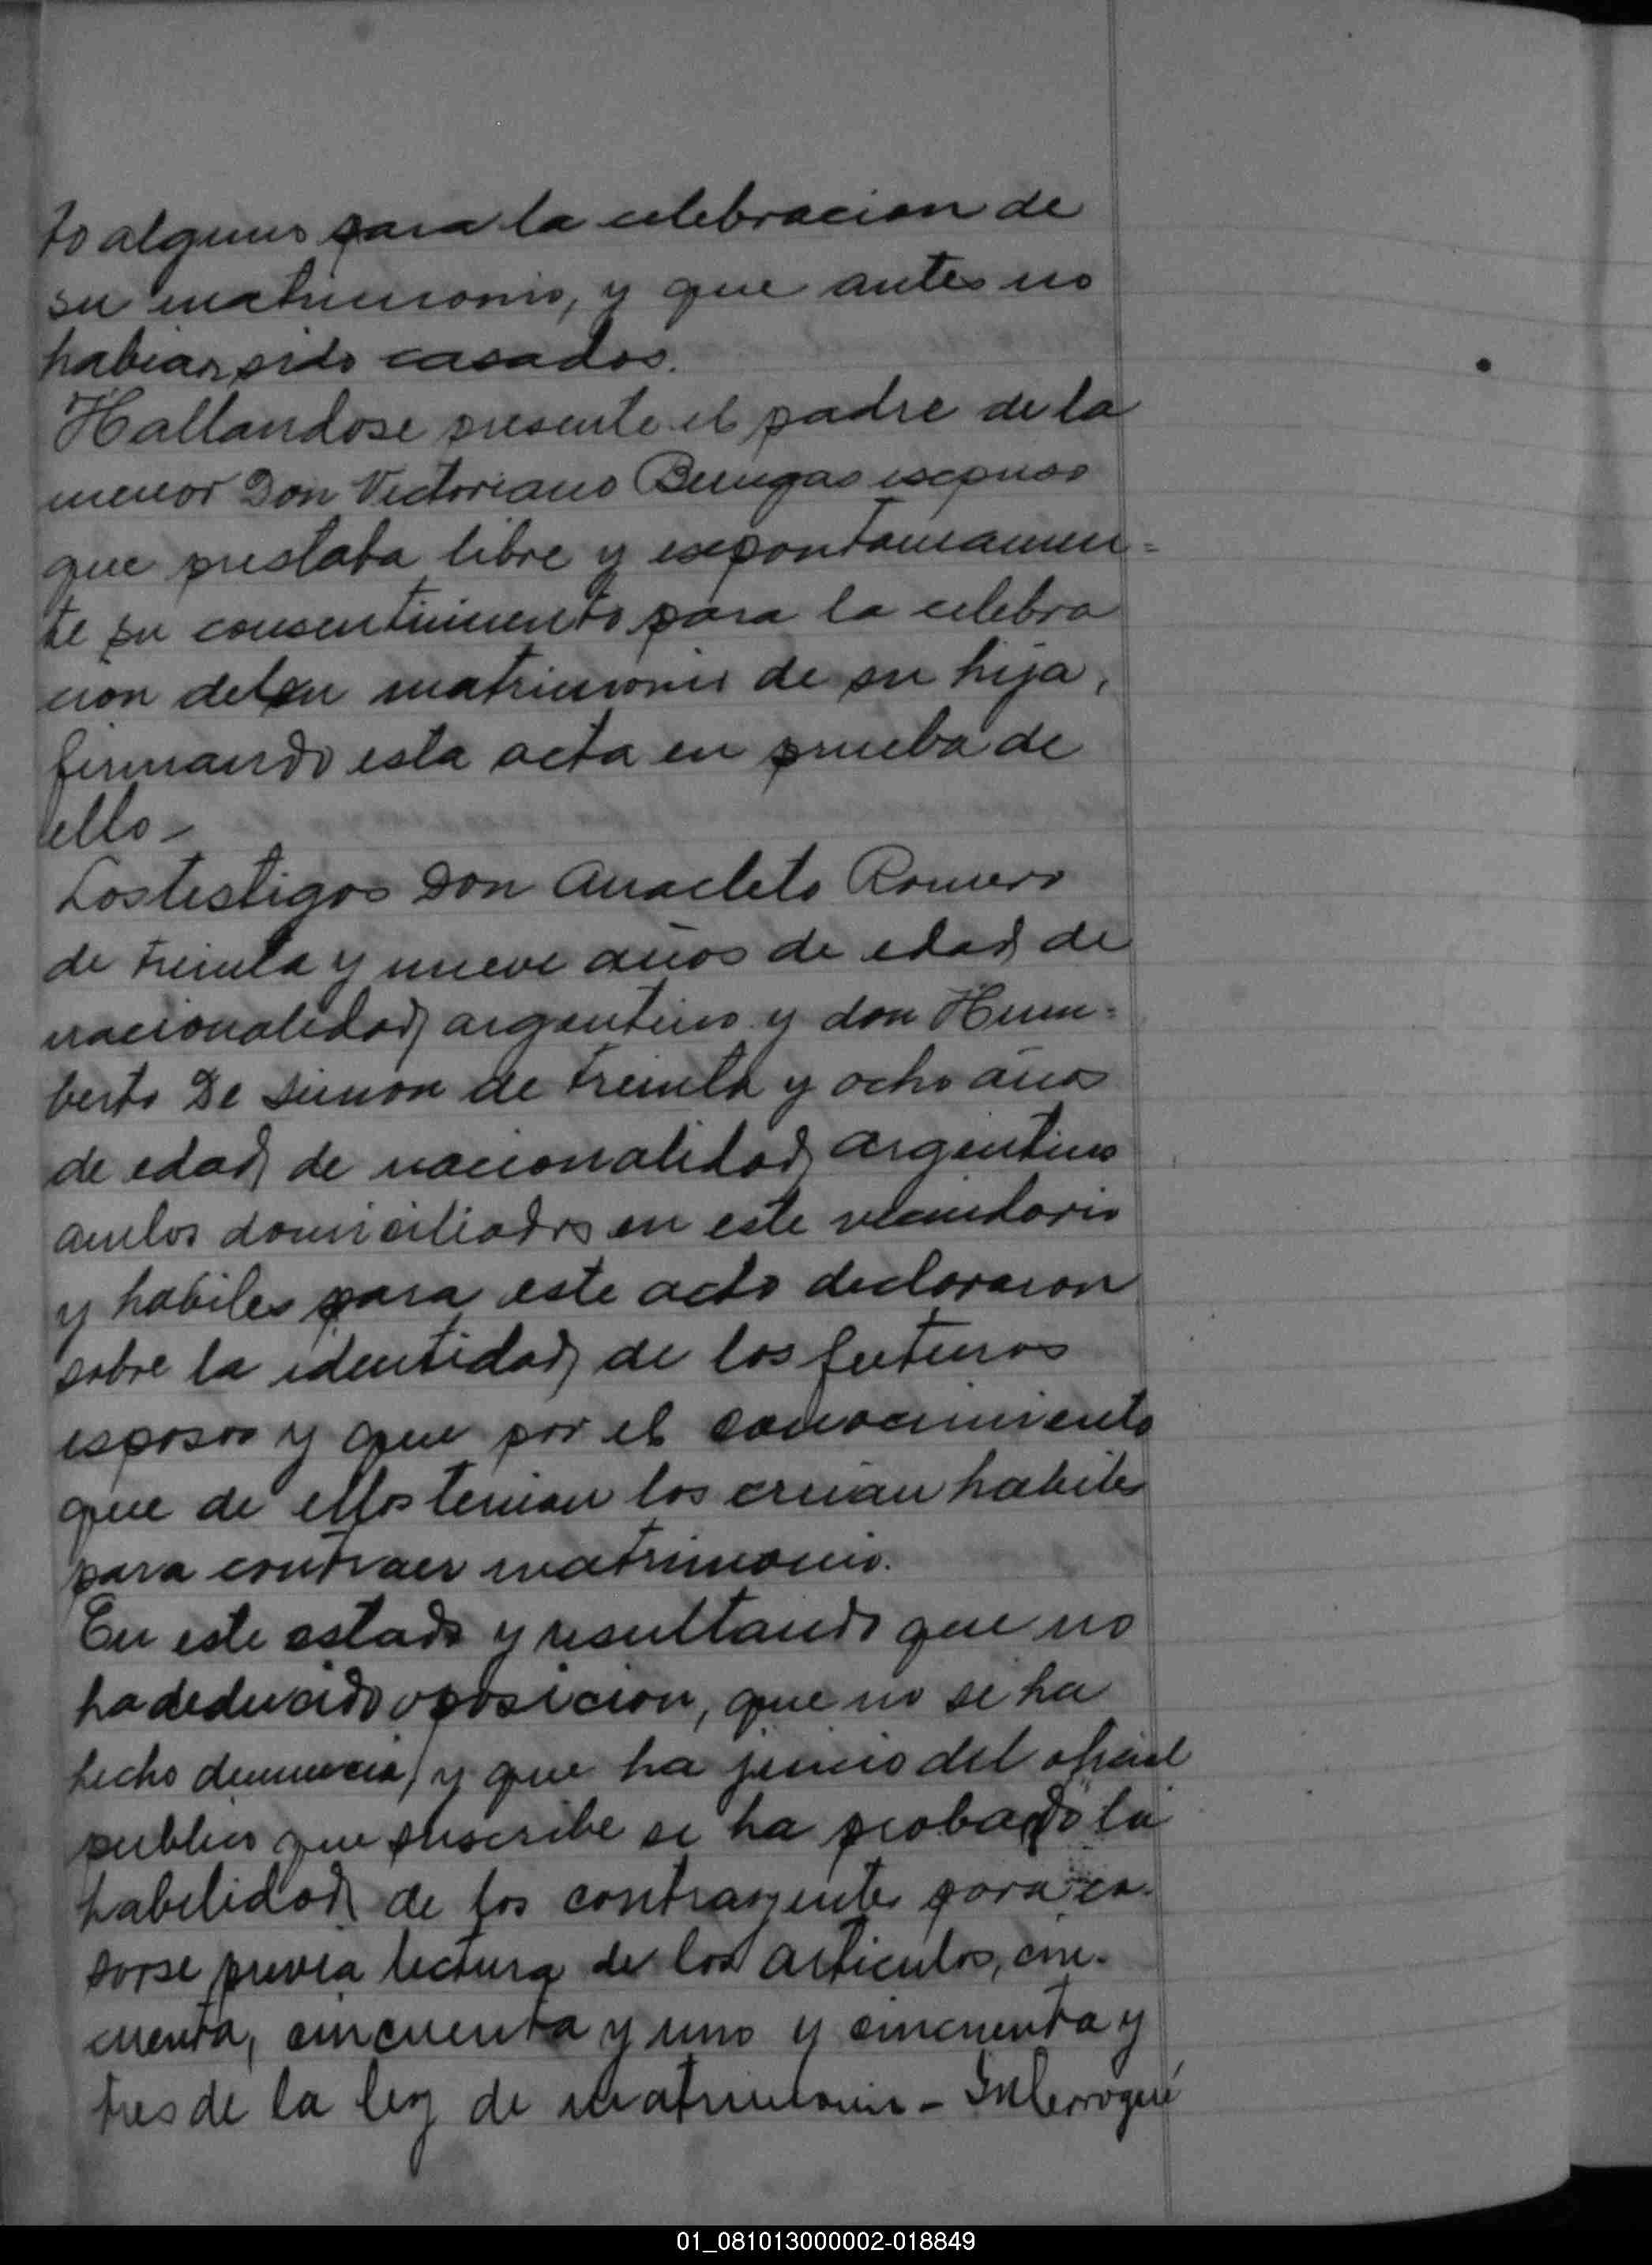 to alguno para la celebracion de
su matrimonio, y que antes no
habian sido casados.
Hallandose presente el padre de la
menor Don Victoriano expuso
que prestaba libre y expontaneamen=
te su consentimiento para la celebra
cion del su matrimonio de su hija,
firmando esta acta en prueba de
ello -
Los testigos Don Anacleto Romero
de treinta y nueve años de edad de
nacionalidad argentino y don Hum=
berto De Simon de treinta y ocho años
de edad de nacionalidad argentino
ambos domiciliados en este vecindario
y habiles para este acto declararon
sobre la identidad de los futuros
esposos y que por el conocimiento
que de ellos tenian los creian habiles
para contraer matrimonio.
En este estado y resultando que no
ha deducido oposicion, que no se ha
hecho denuncia, y que ha juicio del oficial
publico que suscribe se ha probado la
habilidad de los contrayentes para ca-
sarse previa lectura de los articulos, cin-
cuenta, cincuenta y uno y cincuenta y
tres de la ley de matrimonio - Interrogué
01_081013000002-018849